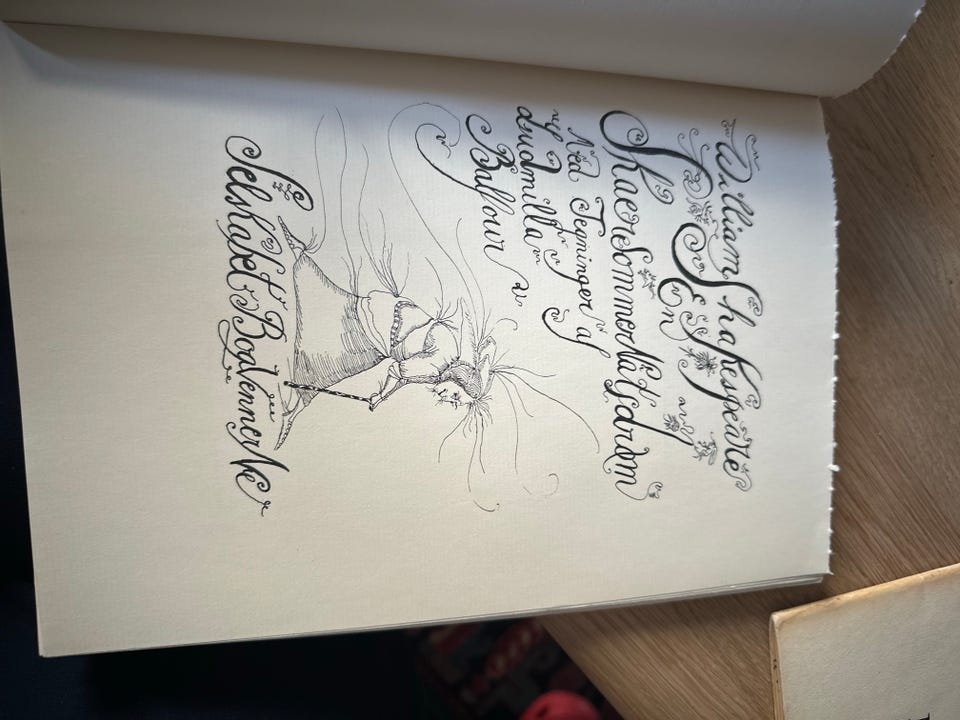 William Shakespeare
En
SkærSommerNatsdrøm
Med Tegninger af
Ludmilla
Balfour
Selskabet Bogvennerne